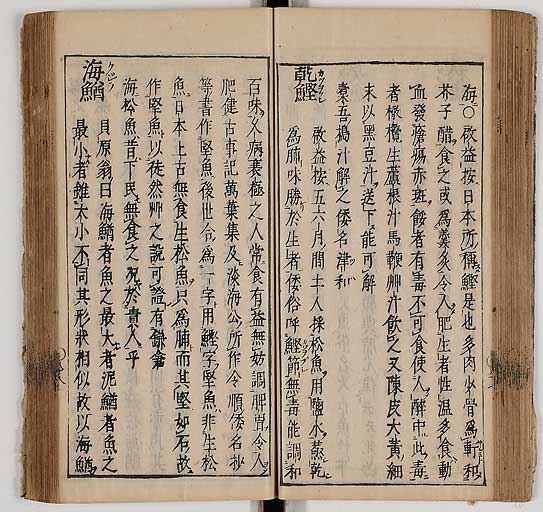 海〇啟益按日本所稱鰹是也多肉少骨爲軒和
芥子醋食之或爲羹炙令人肥生者性温多食動
血發瘡瘍赤斑餒者有毒不可食使人醉中此毒
者橄欖生蘆根汁馬鞭艸汁飲之又陳皮大黄細
末以黒豆汁送下能可解
橐吾搗汁解之倭名津和
乾鰹 カツヲブシ
啟益按五六月間土人採松魚用鹽水蒸乾
爲脯味勝於生者倭俗呼鰹節無毒能調和
百味又病衰極之人常食有益無妨調脾胃令人
肥健古事記萬葉集及淡海公所作令順倭名抄
等書作堅魚後世合爲一字用鰹字堅魚非生松
魚日本上古無食生松魚只爲脯而其堅如石故
作堅魚以徒然艸之說可證有鎌倉
海松魚昔下民無食之况於貴人乎
海鰌 クジラ
貝原翁曰海鰌者魚之最大者泥鰌者魚之
最小者雖大小不同其形狀相似故以海鰌